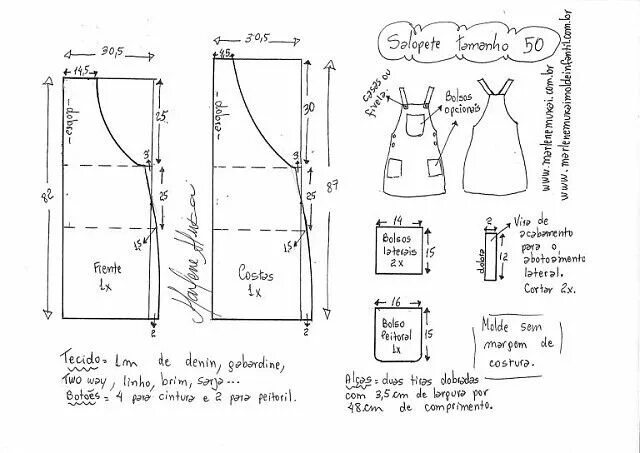 Salopete tamanho 50
www.marlenemukai.com.br
www.marlenemukaimoldeinfantil.com.br
30,5
14,5
dobra
25
3
25
1,5
82
Frente
1x
2
30,5
4,5
dobra
30
3
25
1,5
87
Costas
1x
2
Marlene Mukai
casas ou
fivela
Bolsos
opcionais
14
Bolsos
laterais
2x
15
2
dobra
12
Vira de
acabamento
para o
abotoamento
lateral.
Cortar 2x.
16
Bolso
Peitoral
1x
15
Molde sem
margem de
costura.
Tecido= 1m de denin, gabardine,
Two way, linho, brim, sarja...
Botões = 4 para cintura e 2 para peitoril.
Alças = duas tiras dobradas
com 3,5cm de largura por
48cm de comprimento.